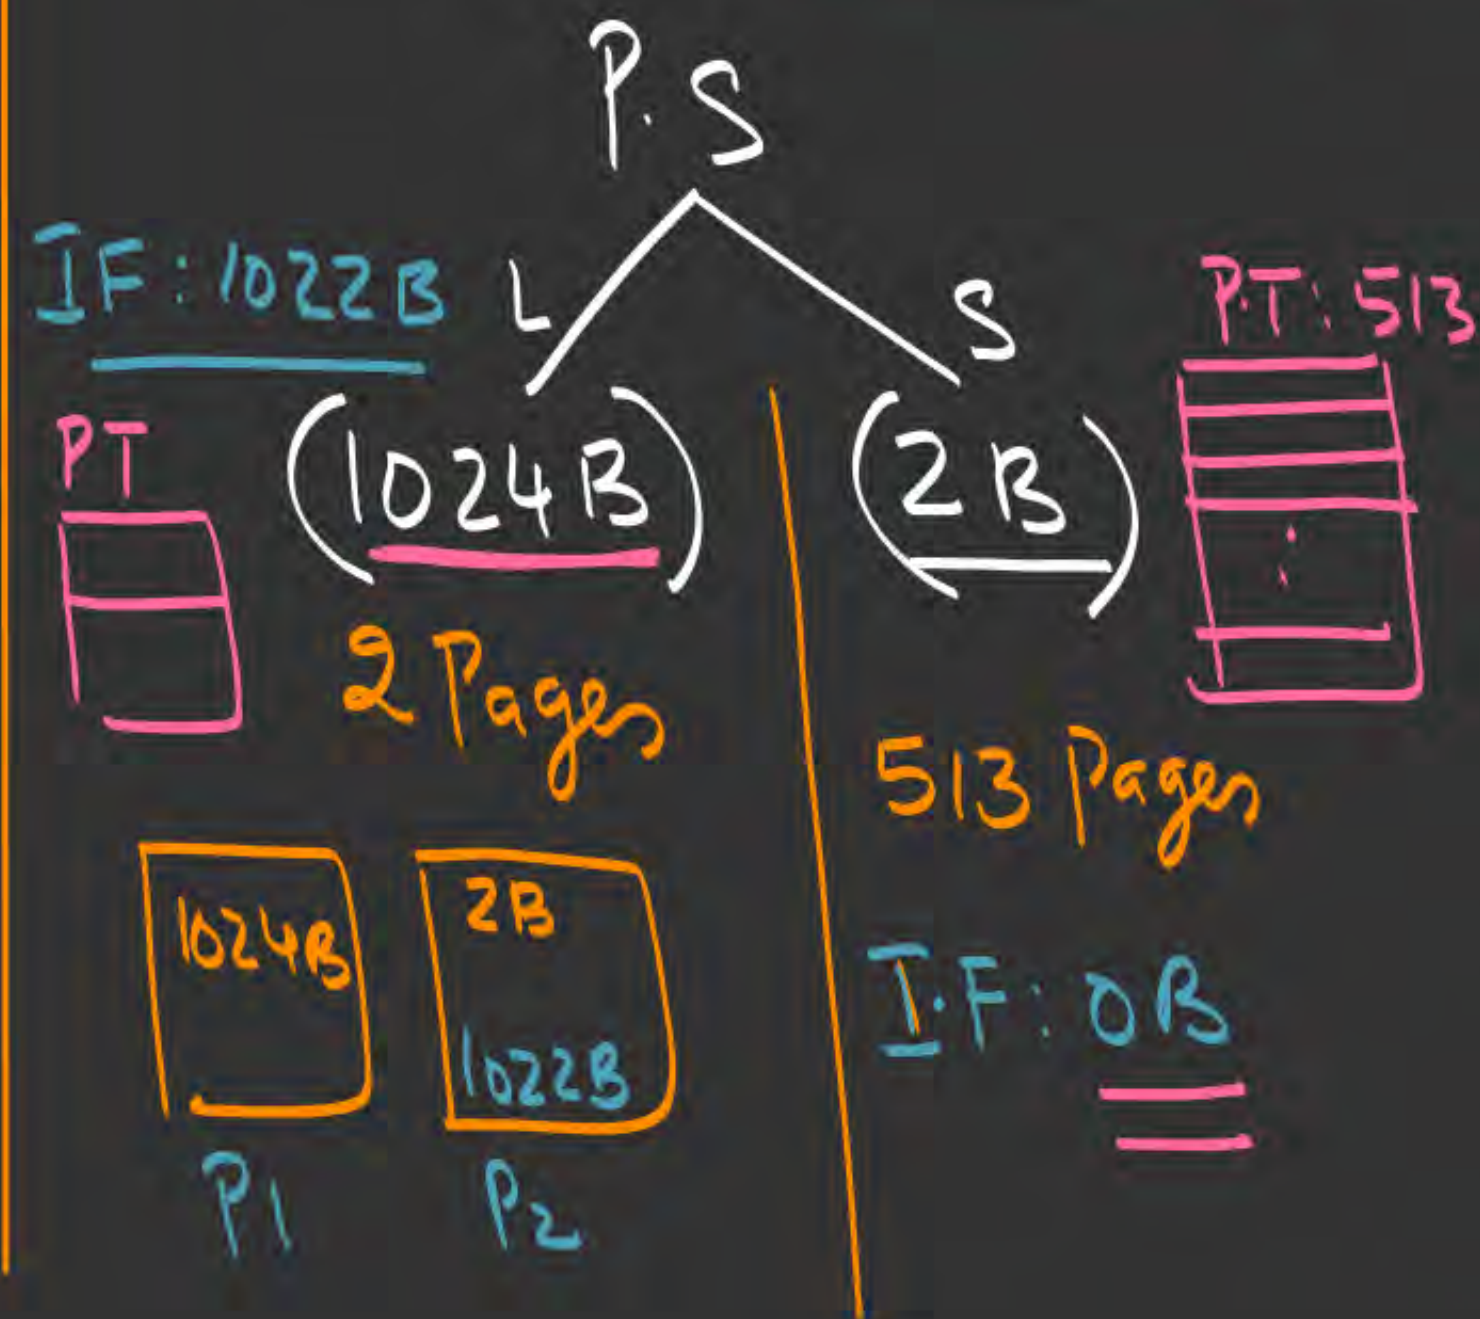 P.S
IF: 1022B
L
S
P.T: 513
PT
(1024B)
(2B)
2 Pages
513 Pages
1024B
2B
1022B
I.F: 0B
P1
P2